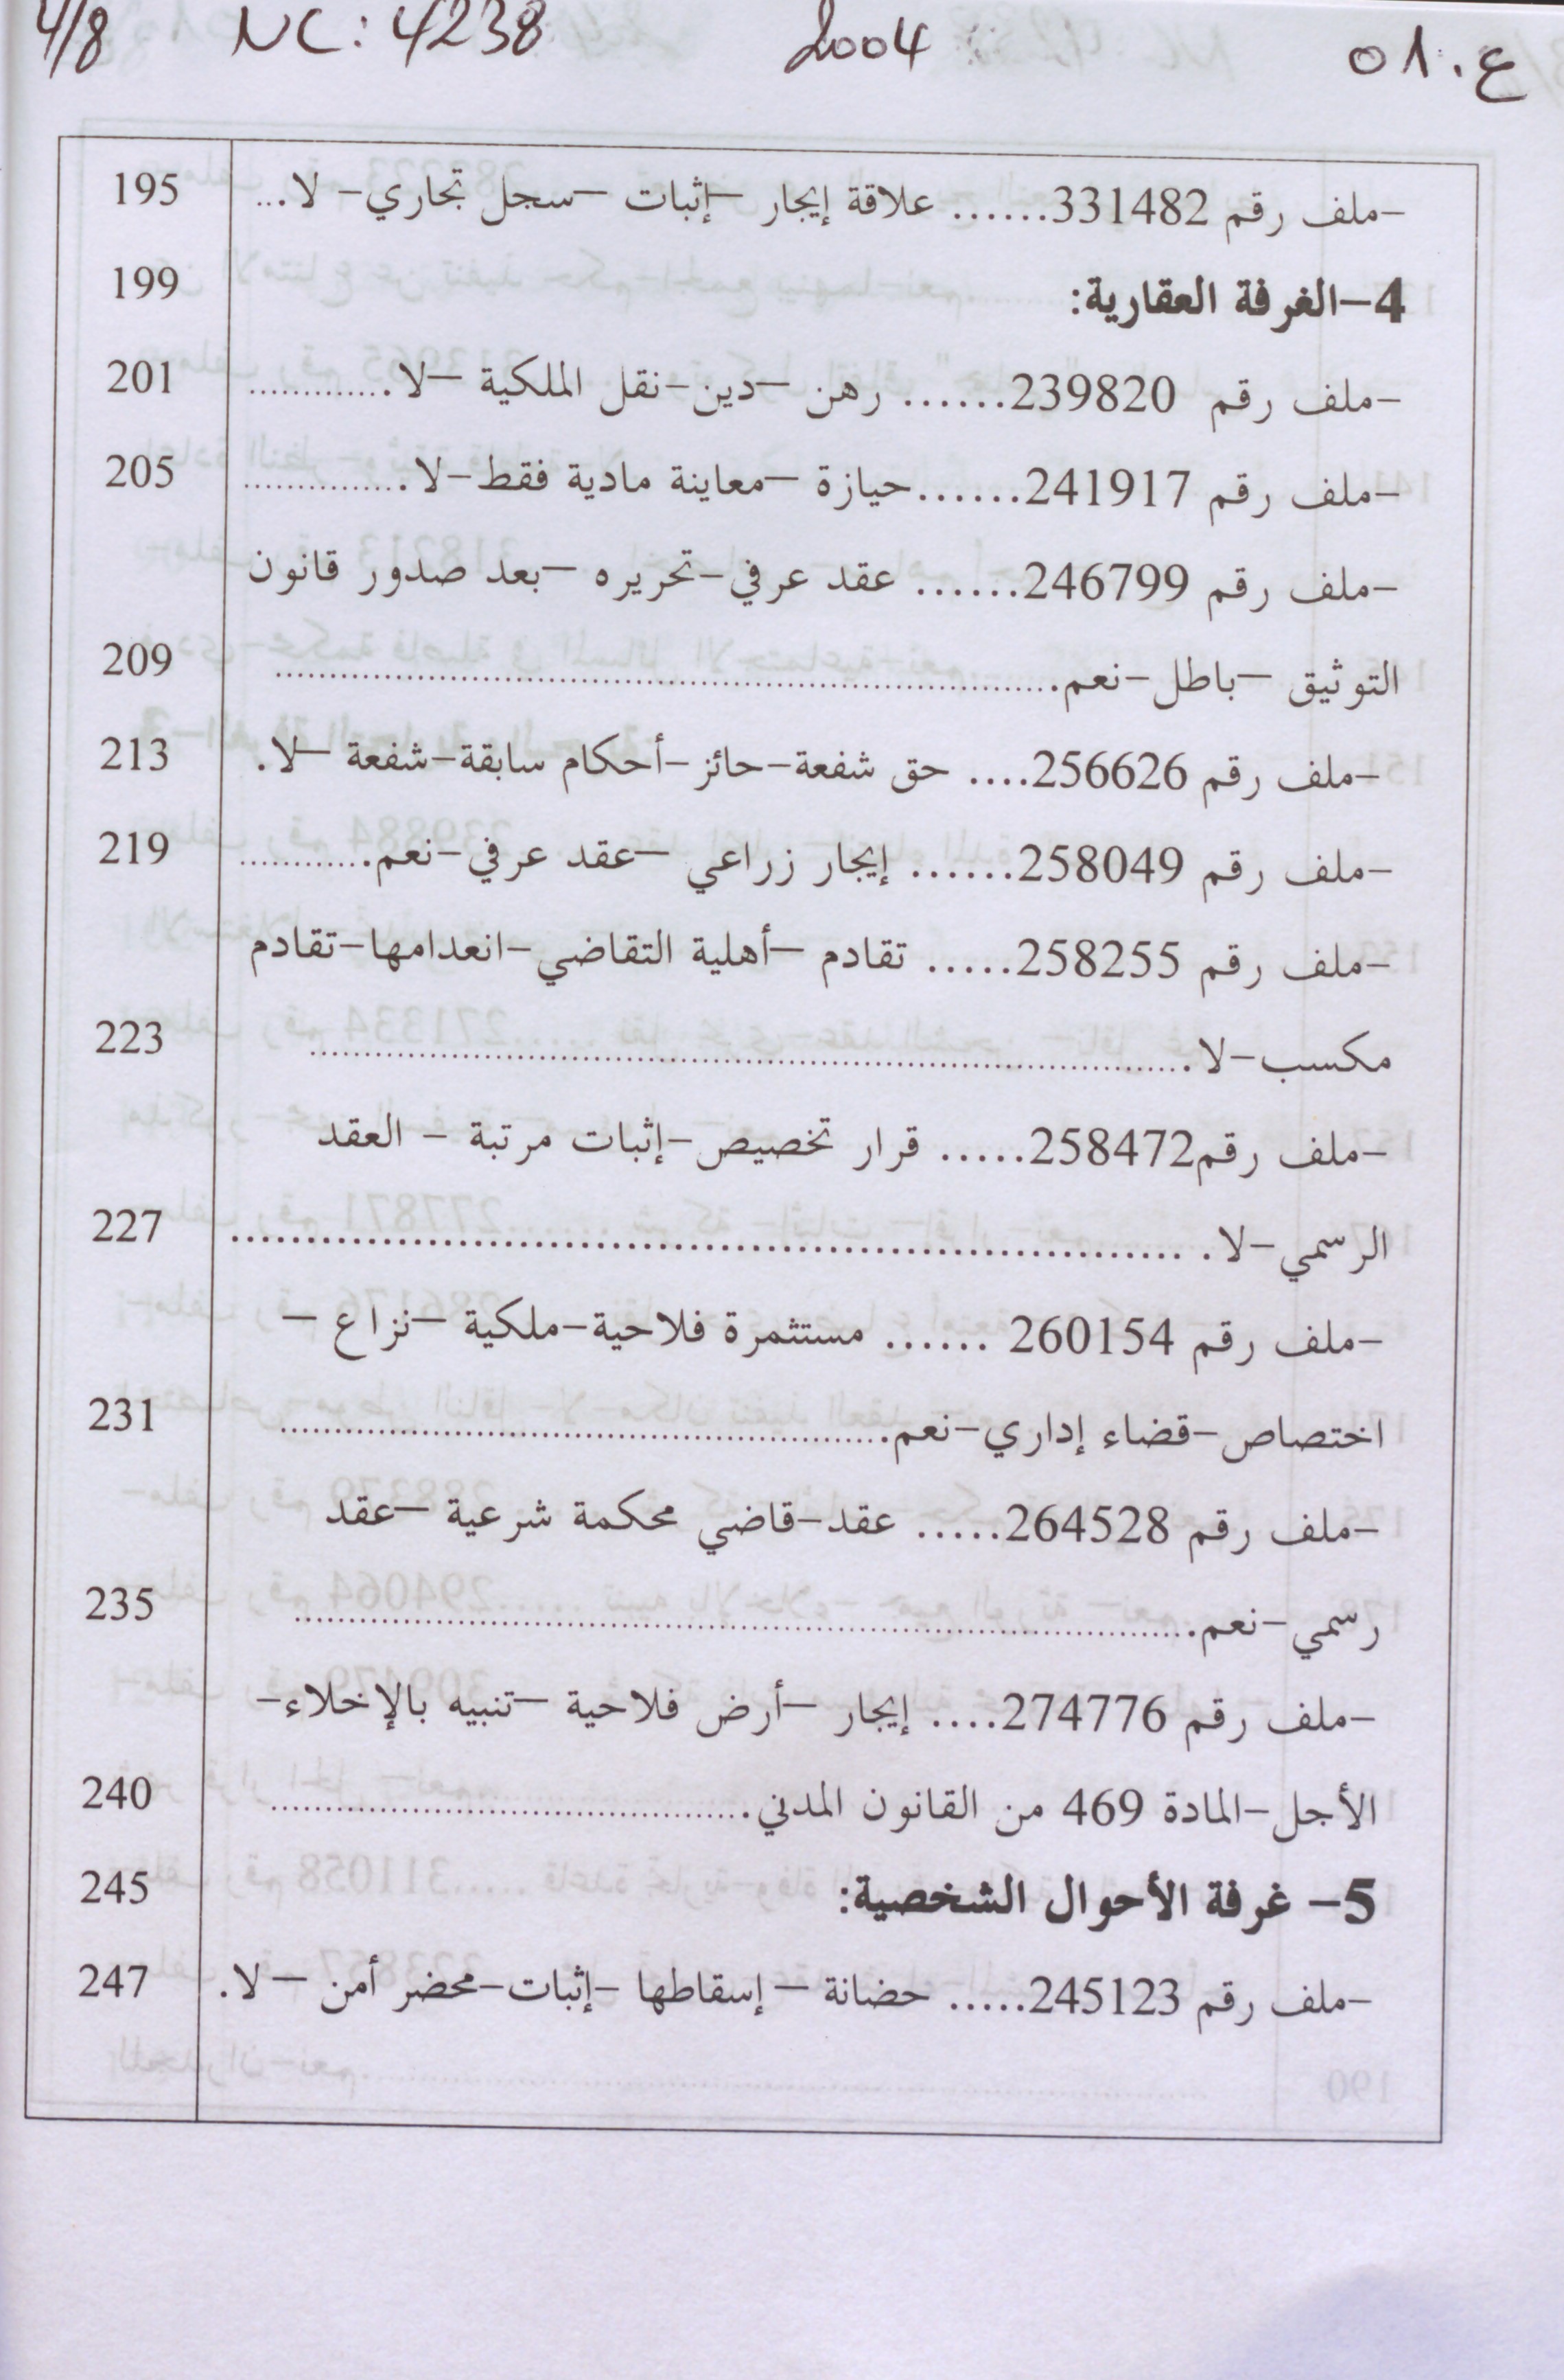 ع. ٥١ 2004 NC: 4238 4/8
-ملف رقم 331482...... علاقة إيجار –إثبات –سجل تجاري- لا... 195
4-الغرفة العقارية: 199
-ملف رقم 239820...... رهن –دين-نقل الملكية –لا............. 201
-ملف رقم 241917......حيازة –معاينة مادية فقط-لا............... 205
-ملف رقم 246799...... عقد عرفي-تحريره –بعد صدور قانون
التوثيق –باطل-نعم........................................................................ 209
-ملف رقم 256626.... حق شفعة-حائز-أحكام سابقة-شفعة –لا. 213
-ملف رقم 258049...... إيجار زراعي –عقد عرفي-نعم............ 219
-ملف رقم 258255..... تقادم –أهلية التقاضي-انعدامها-تقادم
مكسب-لا................................................................................ 223
-ملف رقم258472..... قرار تخصيص-إثبات مرتبة - العقد
الرسمي-لا. ................................................................ 227
-ملف رقم 260154 ...... مستثمرة فلاحية-ملكية –نزاع –
اختصاص-قضاء إداري-نعم........................................................ 231
-ملف رقم 264528..... عقد-قاضي محكمة شرعية –عقد
رسمي-نعم................................................................................ 235
-ملف رقم 274776.... إيجار –أرض فلاحية –تنبيه بالإخلاء-
الأجل-المادة 469 من القانون المدني............................................ 240
5- غرفة الأحوال الشخصية: 245
-ملف رقم 245123..... حضانة – إسقاطها -إثبات-محضر أمن – لا. 247